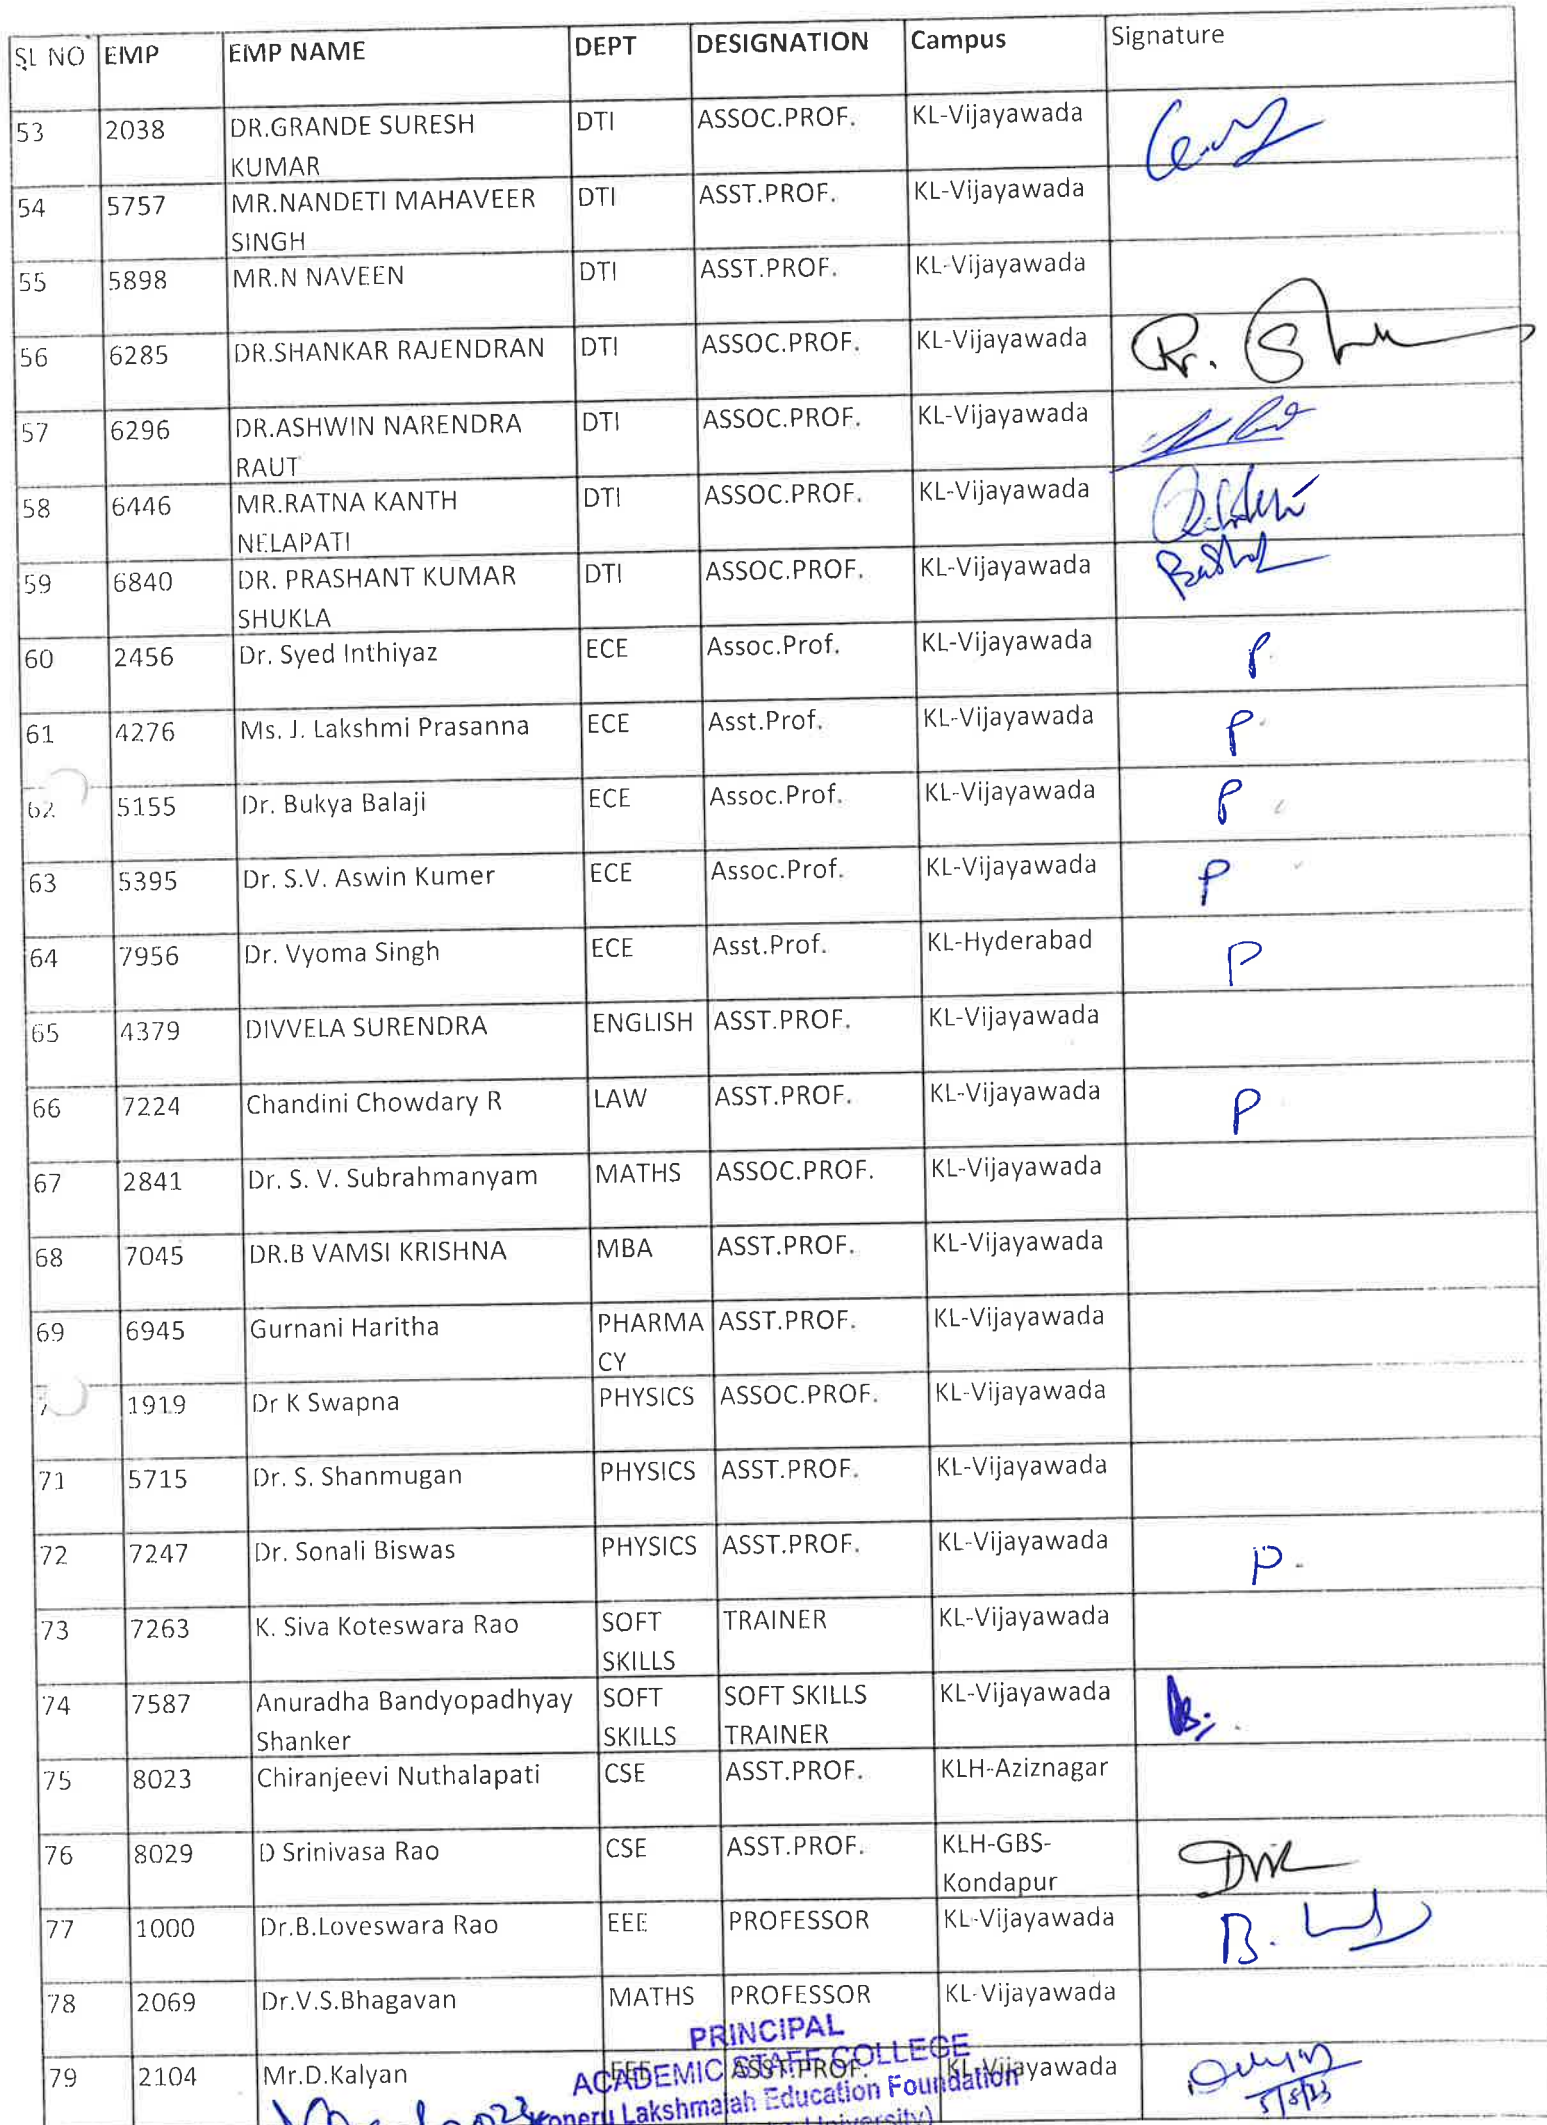 SL NO EMP EMP NAME DEPT DESIGNATION Campus Signature
53 2038 DR.GRANDE SURESH DTI ASSOC.PROF. KL-Vijayawada
KUMAR
54 5757 MR.NANDETI MAHAVEER DTI ASST.PROF. KL-Vijayawada
SINGH
55 5898 MR.N NAVEEN DTI ASST.PROF. KL-Vijayawada
56 6285 DR.SHANKAR RAJENDRAN DTI ASSOC.PROF. KL-Vijayawada
57 6296 DR.ASHWIN NARENDRA DTI ASSOC.PROF. KL-Vijayawada
RAUT
58 6446 MR.RATNA KANTH DTI ASSOC.PROF. KL-Vijayawada
NELAPATI
59 6840 DR. PRASHANT KUMAR DTI ASSOC.PROF. KL-Vijayawada
SHUKLA
60 2456 Dr. Syed Inthiyaz ECE Assoc.Prof. KL-Vijayawada P
61 4276 Ms. J. Lakshmi Prasanna ECE Asst.Prof. KL-Vijayawada P
62 5155 Dr. Bukya Balaji ECE Assoc.Prof. KL-Vijayawada P
63 5395 Dr. S.V. Aswin Kumer ECE Assoc.Prof. KL-Vijayawada P
64 7956 Dr. Vyoma Singh ECE Asst.Prof. KL-Hyderabad P
65 4379 DIVVELA SURENDRA ENGLISH ASST.PROF. KL-Vijayawada
66 7224 Chandini Chowdary R LAW ASST.PROF. KL-Vijayawada P
67 2841 Dr. S. V. Subrahmanyam MATHS ASSOC.PROF. KL-Vijayawada
68 7045 DR.B VAMSI KRISHNA MBA ASST.PROF. KL-Vijayawada
69 6945 Gurnani Haritha PHARMA ASST.PROF. KL-Vijayawada
CY
1919 Dr K Swapna PHYSICS ASSOC.PROF. KL-Vijayawada
71 5715 Dr. S. Shanmugan PHYSICS ASST.PROF. KL-Vijayawada
72 7247 Dr. Sonali Biswas PHYSICS ASST.PROF. KL-Vijayawada P.
73 7263 K. Siva Koteswara Rao SOFT TRAINER KL-Vijayawada
SKILLS
74 7587 Anuradha Bandyopadhyay SOFT SOFT SKILLS KL-Vijayawada
Shanker SKILLS TRAINER
75 8023 Chiranjeevi Nuthalapati CSE ASST.PROF. KLH-Aziznagar
76 8029 D Srinivasa Rao CSE ASST.PROF. KLH-GBS-
Kondapur
77 1000 Dr.B.Loveswara Rao EEE PROFESSOR KL-Vijayawada
78 2069 Dr.V.S.Bhagavan MATHS PROFESSOR KL-Vijayawada
PRINCIPAL
ACADEMIC STAFF COLLEGE
79 2104 Mr.D.Kalyan EEE ASST.PROF. KL-Vijayawada
5/8/23
Koneru Lakshmaiah Education Foundation
University)